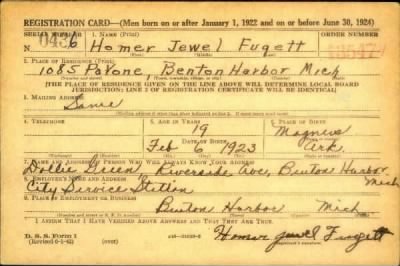 REGISTRATION CARD—(Men born on or after January 1, 1922 and on or before June 30, 1924)
SERIAL NUMBER 1. NAME (Print) ORDER NUMBER
N 0436 Homer Jewel Fugett
2. PLACE OF RESIDENCE (Print)
1085 Pavone, Benton Harbor Mich
[THE PLACE OF RESIDENCE GIVEN ON THE LINE ABOVE WILL DETERMINE LOCAL BOARD
JURISDICTION; LINE 2 OF REGISTRATION CERTIFICATE WILL BE IDENTICAL]
3. MAILING ADDRESS
Same
4. TELEPHONE 5. AGE IN YEARS 6. PLACE OF BIRTH
19 Magness
DATE OF BIRTH
Feb 6 1923 Ark.
7. NAME AND ADDRESS OF PERSON WHO WILL ALWAYS KNOW YOUR ADDRESS
Dollie Green Riverside Ave, Benton Harbor Mich
8. EMPLOYER'S NAME AND ADDRESS
City Service Station
9. PLACE OF EMPLOYMENT OR BUSINESS
Benton Harbor Mich
I AFFIRM THAT I HAVE VERIFIED ABOVE ANSWERS AND THAT THEY ARE TRUE.
D. S. S. Form 1
(Revised 6-1-42) (over)
Homer Jewel Fugett